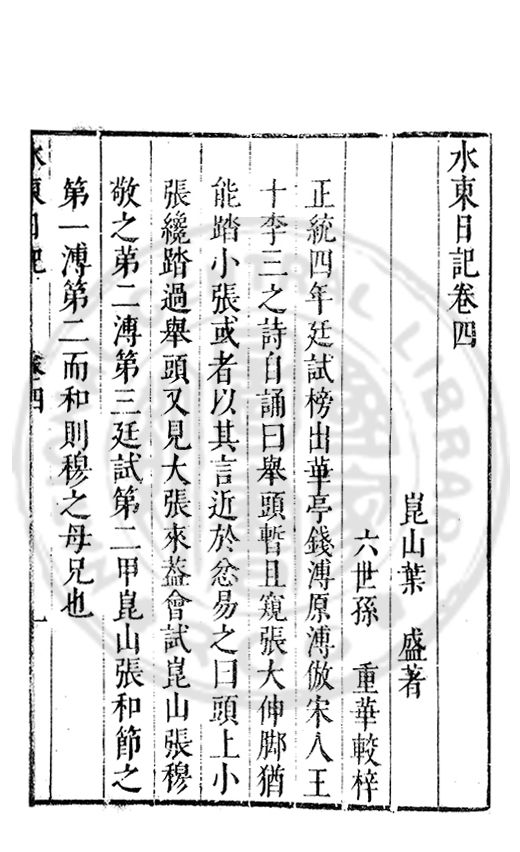 水東日記卷四
崑山葉　盛著
六世孫　重華較梓
正統四年廷試榜出華亭錢溥原溥倣宋人王
十李三之詩自誦曰舉頭暫且窺張大伸脚猶
能踏小張或者以其言近於忿易之曰頭上小
張纔踏過舉頭又見大張來葢會試崑山張穆
敬之苐二溥第三廷試第二甲崑山張和節之
第一溥第二而和則穆之母兄也
水東日記　卷四　一